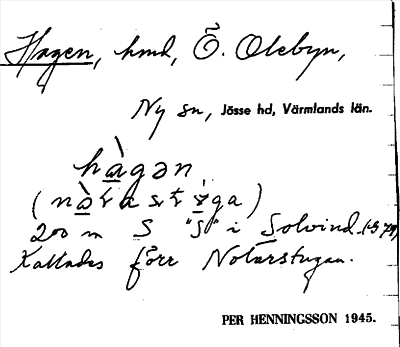 Hagen, hmd, Ö. Olebyn,
Ny sn, Jösse hd, Värmlands län.
hàgən
200 m S "S" i Solvind.
Kallades förr Notarstugan.
PER HENNINGSSON 1945.